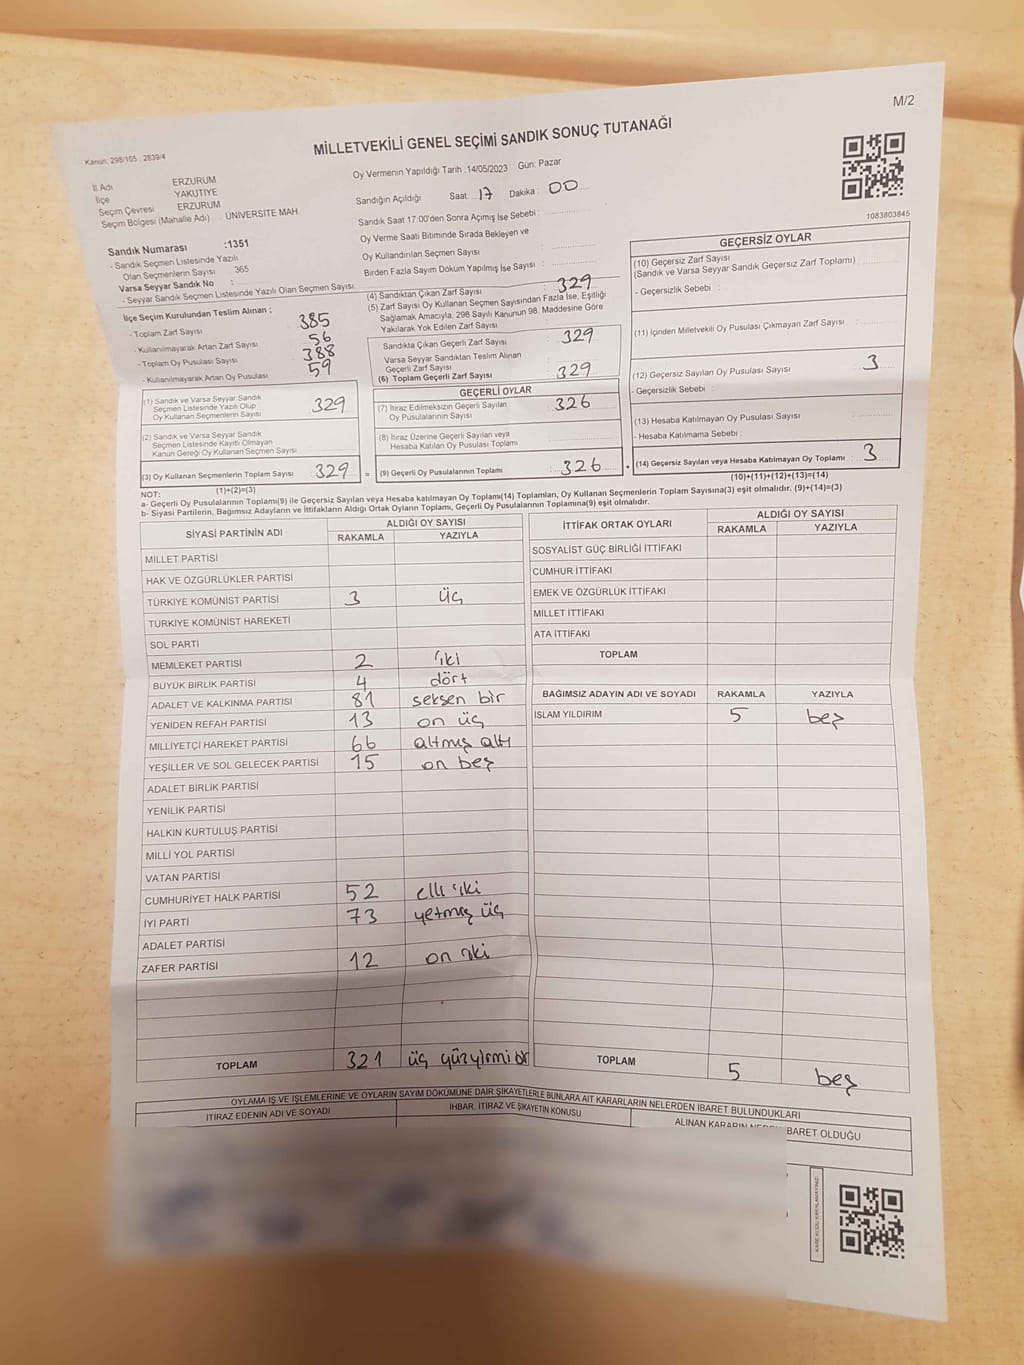 M/2
Kanun, 298/105 , 2839/4
MİLLETVEKİLİ GENEL SEÇİMİ SANDIK SONUÇ TUTANAĞI
İl Adı ERZURUM
İlçe YAKUTİYE
Seçim Çevresi ERZURUM
Seçim Bölgesi (Mahalle Adı) : ÜNİVERSİTE MAH.
Sandık Numarası :1351
- Sandık Seçmen Listesinde Yazılı
Olan Seçmenlerin Sayısı : 365
Varsa Seyyar Sandık No :
- Seyyar Sandık Seçmen Listesinde Yazılı Olan Seçmen Sayısı:
Oy Vermenin Yapıldığı Tarih :14/05/2023 Gün: Pazar
Sandığın Açıldığı Saat: 17 Dakika : 00
Sandık Saat 17:00'den Sonra Açımış İse Sebebi :
Oy Verme Saati Bitiminde Sırada Bekleyen ve
Oy Kullandırılan Seçmen Sayısı
Birden Fazla Sayım Döküm Yapılmış İse Sayısı :
1083803845
İlçe Seçim Kurulundan Teslim Alınan ;
- Toplam Zarf Sayısı 385
- Kullanılmayarak Artan Zarf Sayısı 56
- Toplam Oy Pusulası Sayısı 388
- Kullanılmayarak Artan Oy Pusulası 59
(1) Sandık ve Varsa Seyyar Sandık
Seçmen Listesinde Yazılı Olup
Oy Kullanan Seçmenlerin Sayısı 329
(2) Sandık ve Varsa Seyyar Sandık
Seçmen Listesinde Kayıtlı Olmayan
Kanun Gereği Oy Kullanan Seçmen Sayısı
(3) Oy Kullanan Seçmenlerin Toplam Sayısı 329 =
(1)+(2)=(3)
(4) Sandıktan Çıkan Zarf Sayısı : 329
(5) Zarf Sayısı Oy Kullanan Seçmen Sayısından Fazla İse, Eşitliği
Sağlamak Amacıyla, 298 Sayılı Kanunun 98. Maddesine Göre
Yakılarak Yok Edilen Zarf Sayısı :
Sandıkta Çıkan Geçerli Zarf Sayısı : 329
Varsa Seyyar Sandıktan Teslim Alınan
Geçerli Zarf Sayısı :
(6) Toplam Geçerli Zarf Sayısı : 329
GEÇERLİ OYLAR
(7) İtiraz Edilmeksizin Geçerli Sayılan
Oy Pusulalarının Sayısı : 326
(8) İtiraz Üzerine Geçerli Sayılan veya
Hesaba Katılan Oy Pusulası Toplamı :
(9) Geçerli Oy Pusulalarının Toplamı : 326 +
GEÇERSİZ OYLAR
(10) Geçersiz Zarf Sayısı
(Sandık ve Varsa Seyyar Sandık Geçersiz Zarf Toplamı) :
- Geçersizlik Sebebi :
(11) İçinden Milletvekili Oy Pusulası Çıkmayan Zarf Sayısı :
(12) Geçersiz Sayılan Oy Pusulası Sayısı : 3
- Geçersizlik Sebebi :
(13) Hesaba Katılmayan Oy Pusulası Sayısı
- Hesaba Katılmama Sebebi :
(14) Geçersiz Sayılan veya Hesaba Katılmayan Oy Toplamı : 3
(10)+(11)+(12)+(13)=(14)
NOT:
a- Geçerli Oy Pusulalarının Toplamı(9) ile Geçersiz Sayılan veya Hesaba Katılmayan Oy Toplamı(14) Toplamları, Oy Kullanan Seçmenlerin Toplam Sayısına(3) eşit olmalıdır. (9)+(14)=(3)
b- Siyasi Partilerin, Bağımsız Adayların ve İttifakların Aldığı Ortak Oyların Toplamı, Geçerli Oy Pusulalarının Toplamına(9) eşit olmalıdır.
SİYASİ PARTİNİN ADI ALDIĞI OY SAYISI
RAKAMLA YAZIYLA
MİLLET PARTİSİ
HAK VE ÖZGÜRLÜKLER PARTİSİ
TÜRKİYE KOMÜNİST PARTİSİ 3 üç
TÜRKİYE KOMÜNİST HAREKETİ
SOL PARTİ
MEMLEKET PARTİSİ 2 iki
BÜYÜK BİRLİK PARTİSİ 4 dört
ADALET VE KALKINMA PARTİSİ 81 seksen bir
YENİDEN REFAH PARTİSİ 13 on üç
MİLLİYETÇİ HAREKET PARTİSİ 66 altmış altı
YEŞİLLER VE SOL GELECEK PARTİSİ 15 on beş
ADALET BİRLİK PARTİSİ
YENİLİK PARTİSİ
HALKIN KURTULUŞ PARTİSİ
MİLLİ YOL PARTİSİ
VATAN PARTİSİ
CUMHURİYET HALK PARTİSİ 52 elli iki
İYİ PARTİ 73 yetmiş üç
ADALET PARTİSİ
ZAFER PARTİSİ 12 on iki
TOPLAM 321 üç yüz yirmi bir
İTTİFAK ORTAK OYLARI ALDIĞI OY SAYISI
RAKAMLA YAZIYLA
SOSYALİST GÜÇ BİRLİĞİ İTTİFAKI
CUMHUR İTTİFAKI
EMEK VE ÖZGÜRLÜK İTTİFAKI
MİLLET İTTİFAKI
ATA İTTİFAKI
TOPLAM
BAĞIMSIZ ADAYIN ADI VE SOYADI RAKAMLA YAZIYLA
İSLAM YILDIRIM 5 beş
TOPLAM 5 beş
OYLAMA İŞ VE İŞLEMLERİNE VE OYLARIN SAYIM DÖKÜMÜNE DAİR ŞİKAYETLERLE BUNLARA AİT KARARLARIN NELERDEN İBARET BULUNDUKLARI
İTİRAZ EDENİN ADI VE SOYADI İHBAR, İTİRAZ VE ŞİKAYETİN KONUSU ALINAN KARARIN İBARET OLDUĞU